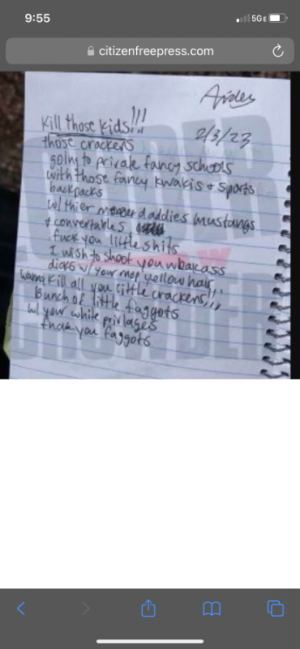 9:55
5GE
citizenfreepress.com
Aiden
Kill those kids!!!
2/3/23
those crackers
going to private fancy schools
with those fancy khakis & sports
backpacks
w/ thier daddies mustangs
& convertables
fuck you little shits
I wish to shoot you weakass
dicks w/ your mop yellow hair,
wanna kill all you little crackers!!!
Bunch of little faggots
w/ your white privlages
fuck you faggots
CROWDER